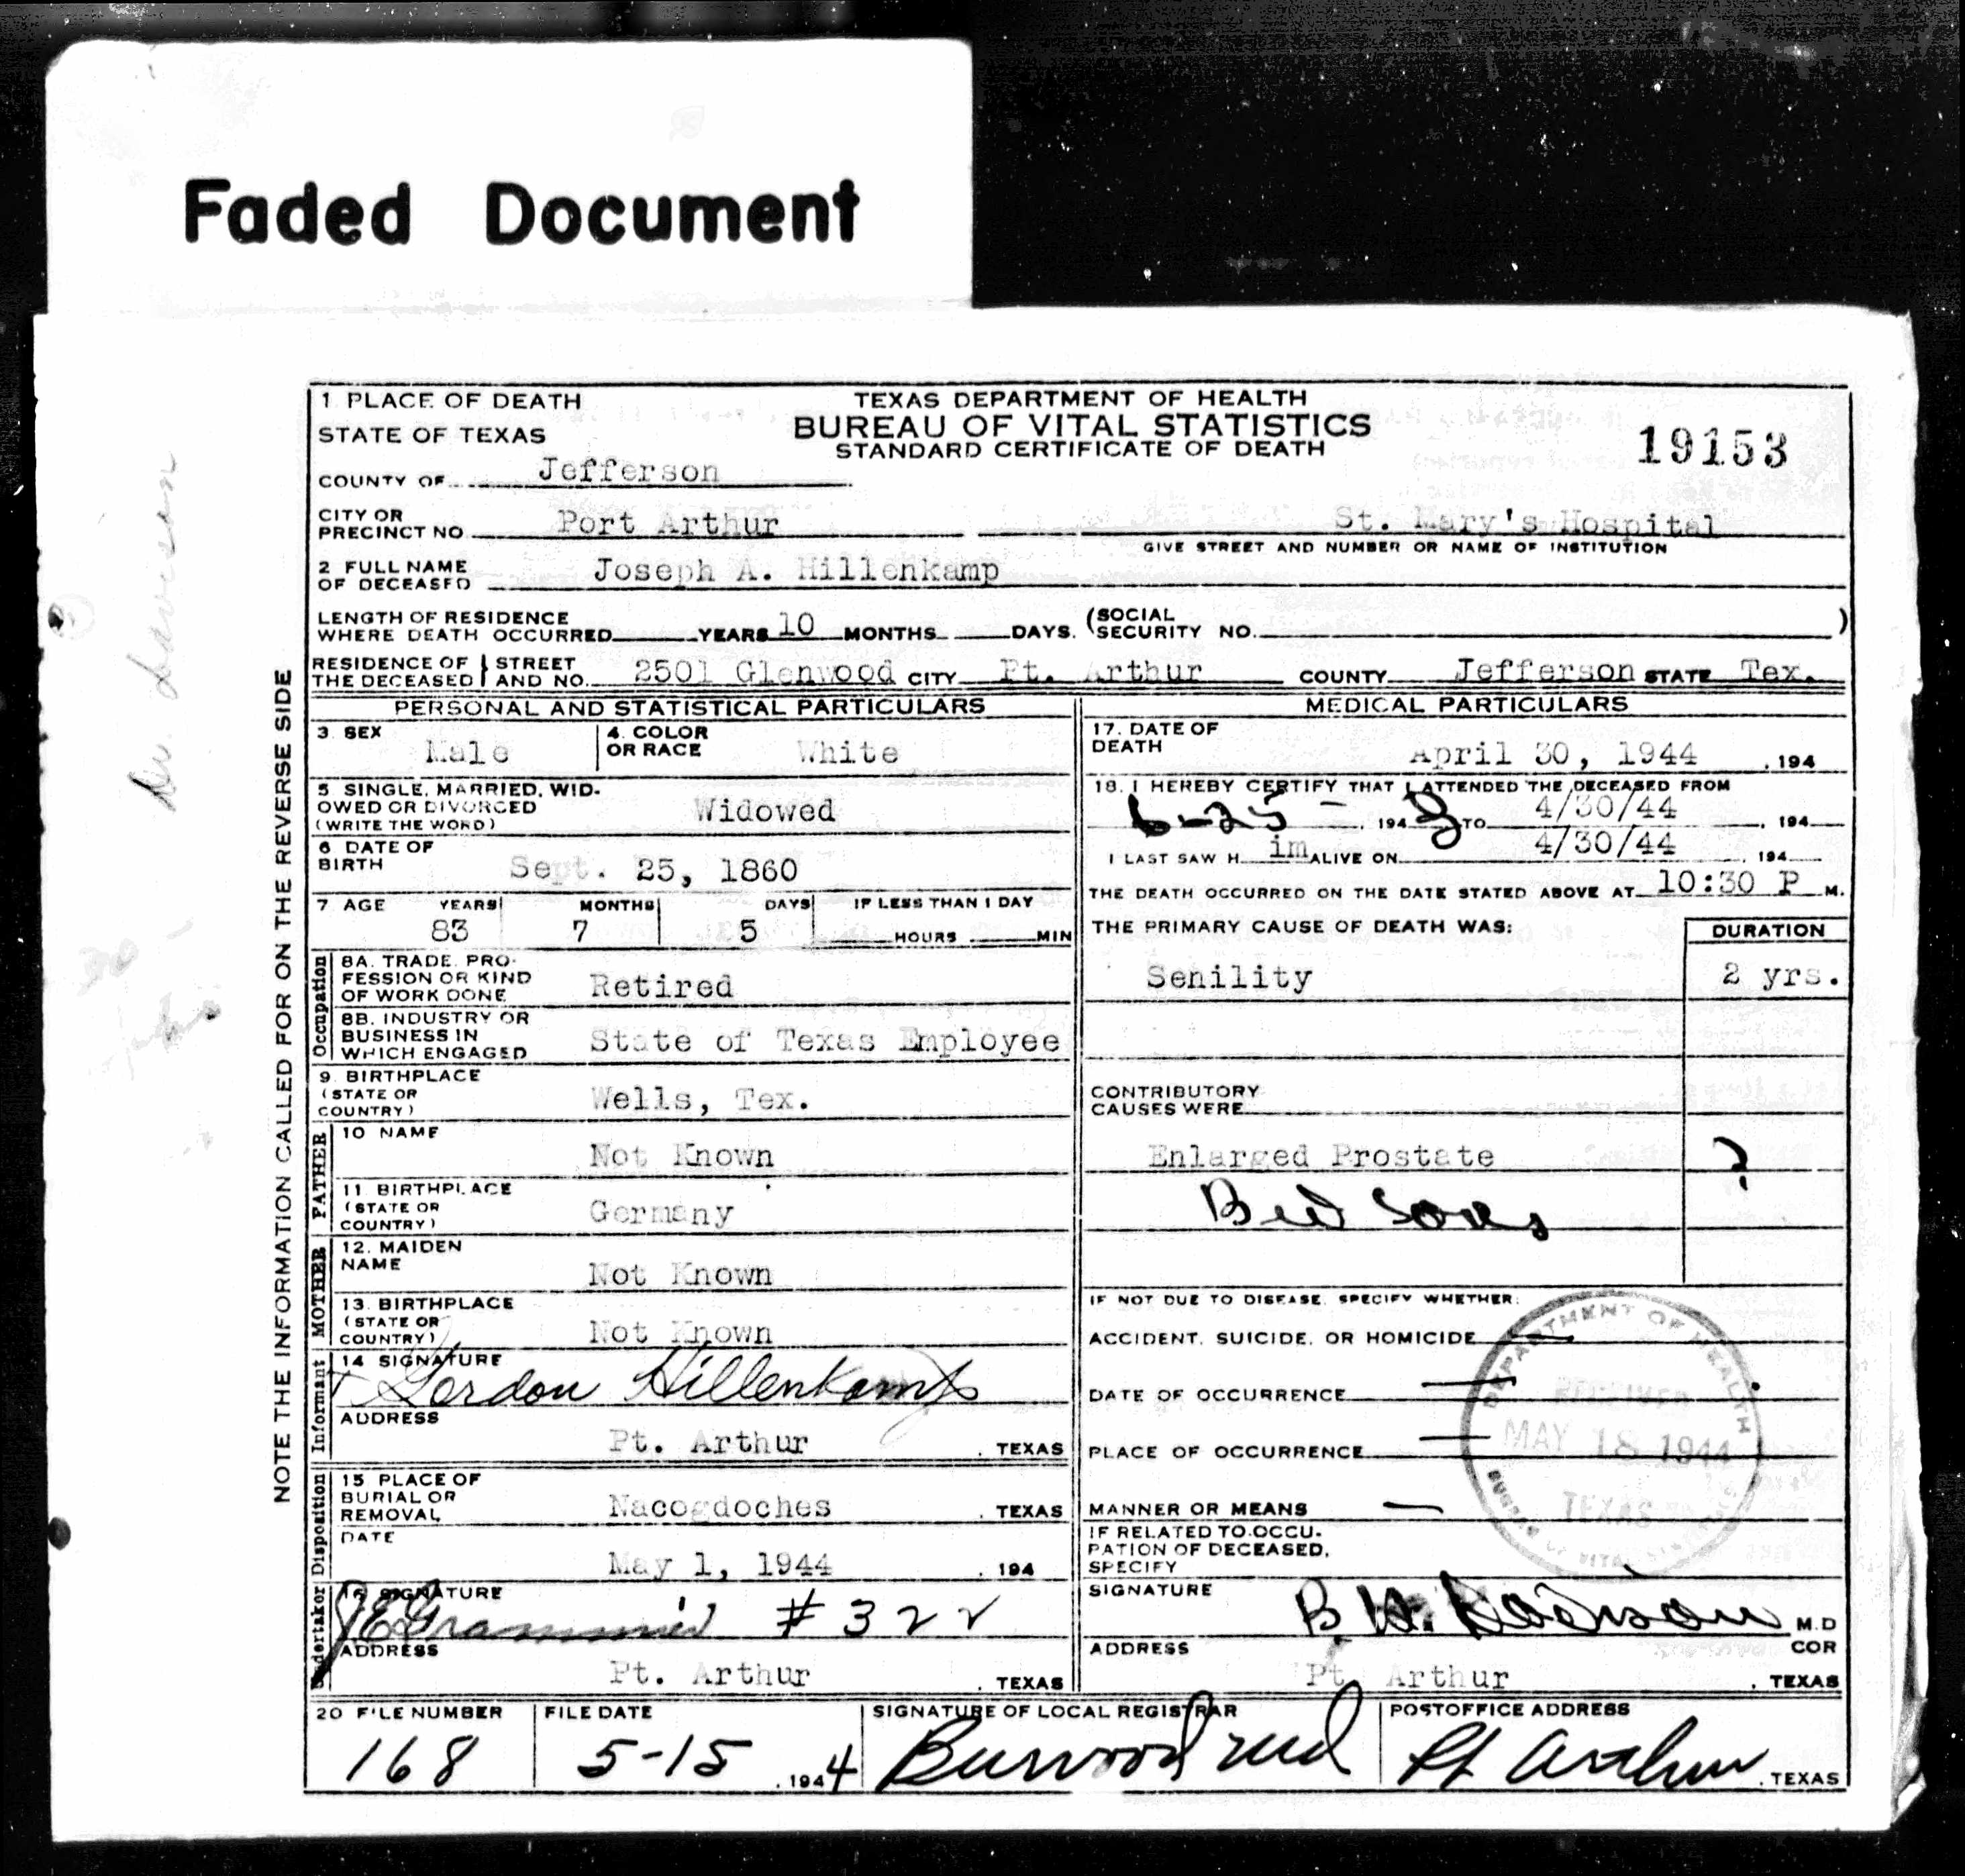 Faded Document
1. PLACE OF DEATH
STATE OF TEXAS
COUNTY OF Jefferson
TEXAS DEPARTMENT OF HEALTH
BUREAU OF VITAL STATISTICS
STANDARD CERTIFICATE OF DEATH
19153
CITY OR
PRECINCT NO. Port Arthur St. Mary's Hospital
GIVE STREET AND NUMBER OR NAME OF INSTITUTION
2 FULL NAME
OF DECEASED Joseph A. Hillenkamp
LENGTH OF RESIDENCE
WHERE DEATH OCCURRED YEARS 10 MONTHS DAYS. (SOCIAL SECURITY NO. )
RESIDENCE OF THE DECEASED } STREET AND NO. 2501 Glenwood CITY Pt. Arthur COUNTY Jefferson STATE Tex.
NOTE THE INFORMATION CALLED FOR ON THE REVERSE SIDE
PERSONAL AND STATISTICAL PARTICULARS
3. SEX Male
4. COLOR OR RACE White
5 SINGLE, MARRIED, WID-
OWED OR DIVORCED
(WRITE THE WORD) Widowed
6 DATE OF
BIRTH Sept. 25, 1860
7 AGE YEARS MONTHS DAYS IF LESS THAN 1 DAY
83 7 5 HOURS MIN
Occupation
8A. TRADE, PRO-
FESSION OR KIND
OF WORK DONE Retired
8B. INDUSTRY OR
BUSINESS IN
WHICH ENGAGED State of Texas Employee
9. BIRTHPLACE
(STATE OR
COUNTRY) Wells, Tex.
FATHER
10 NAME
Not Known
11. BIRTHPLACE
(STATE OR
COUNTRY) Germany
MOTHER
12. MAIDEN
NAME Not Known
13. BIRTHPLACE
(STATE OR
COUNTRY) Not Known
Informant
14 SIGNATURE
Gordon Hillenkamp
ADDRESS
Pt. Arthur , TEXAS
Disposition
15 PLACE OF
BURIAL OR
REMOVAL Nacogdoches , TEXAS
DATE
May 1, 1944 , 194
Undertaker
16 SIGNATURE
# 322
ADDRESS
Pt. Arthur , TEXAS
MEDICAL PARTICULARS
17. DATE OF
DEATH April 30, 1944 , 194
18. I HEREBY CERTIFY THAT I ATTENDED THE DECEASED FROM
6-25- , 194 TO 4/30/44 , 194
I LAST SAW H im ALIVE ON 4/30/44 , 194
THE DEATH OCCURRED ON THE DATE STATED ABOVE AT 10:30 P M.
THE PRIMARY CAUSE OF DEATH WAS: DURATION
Senility 2 yrs.
CONTRIBUTORY
CAUSES WERE
Enlarged Prostate ?
Bed Sores
IF NOT DUE TO DISEASE, SPECIFY WHETHER:
ACCIDENT, SUICIDE, OR HOMICIDE —
DATE OF OCCURRENCE —
PLACE OF OCCURRENCE —
MANNER OR MEANS —
IF RELATED TO OCCU-
PATION OF DECEASED,
SPECIFY
DEPARTMENT OF HEALTH
RECEIVED
MAY 18 1944
TEXAS
SIGNATURE
M.D
COR
ADDRESS
Pt. Arthur , TEXAS
20 FILE NUMBER FILE DATE SIGNATURE OF LOCAL REGISTRAR POSTOFFICE ADDRESS
168 5-15 , 1944 Pt Arthur , TEXAS